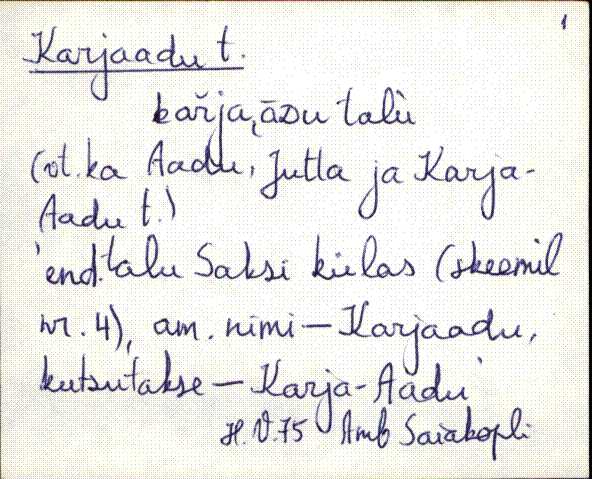 1
Karjaadu t.
kařja, āᴅu talù
(vt. ka Aadu, Jutta ja Karja-
Aadu t.)
'end. talu Saksi külas (skeemil
nr. 4), am. nimi – Karjaadu,
kutsutakse – Karja-Aadu'
H. V. 75 Amb Saiakopli